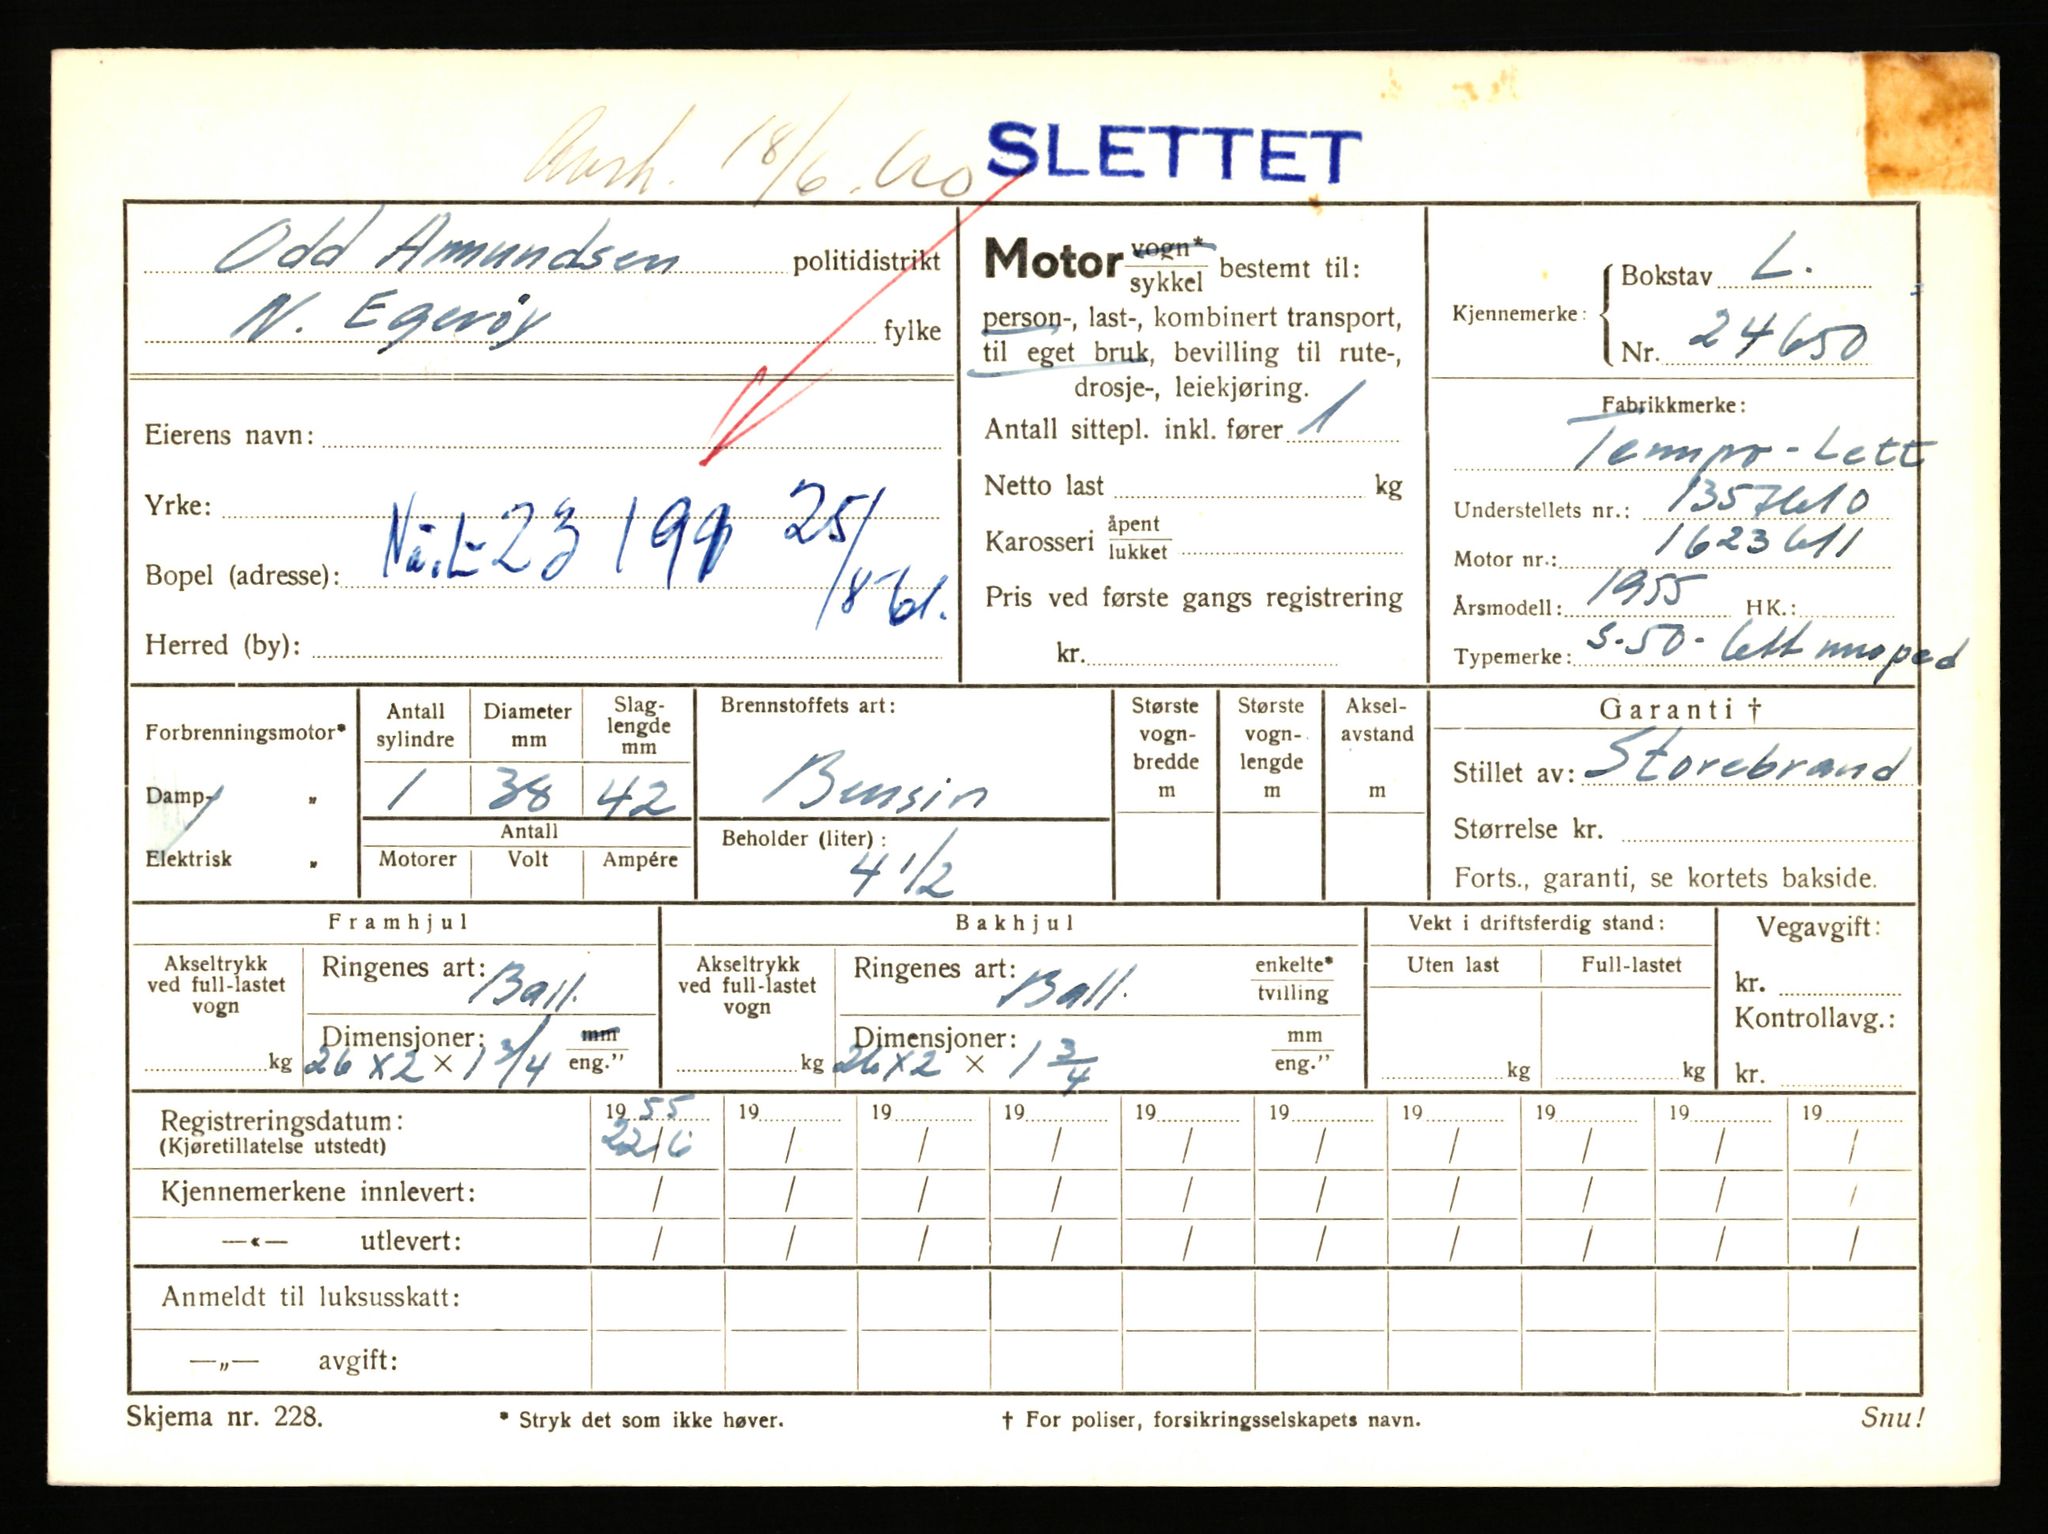 18/6. 60 SLETTET
Odd Amundsen politidistrikt
N. Egerøy fylke
Eierens navn:
Yrke:
Nå L-23199 25/8-61.
Bopel (adresse):
Herred (by):
Motor vogn*/sykkel bestemt til:
person-, last-, kombinert transport,
til eget bruk, bevilling til rute-,
drosje-, leiekjøring.
Antall sittepl. inkl. fører 1
Netto last kg
Karosseri åpent/lukket
Pris ved første gangs registrering
kr.
Kjennemerke: Bokstav L.
Nr. 24650
Fabrikkmerke:
Tempo-Lett
Understellets nr.: 1357610
Motor nr.: 1623611
Årsmodell: 1955 HK.:
Typemerke: S-50- lett moped
Forbrenningsmotor*
Damp- "
Elektrisk "
Antall sylindre
Diameter mm
Slaglengde mm
1 38 42
Antall
Motorer Volt Ampére
Brennstoffets art:
Bensin
Beholder (liter):
4 1/2
Største vogn-bredde m
Største vogn-lengde m
Aksel-avstand m
Garanti †
Stillet av: Storebrand
Størrelse kr.
Forts., garanti, se kortets bakside.
Framhjul
Akseltrykk ved full-lastet vogn
kg
Ringenes art: Ball.
Dimensjoner: mm/eng."
26 x 2 × 1 3/4
Bakhjul
Akseltrykk ved full-lastet vogn
kg
Ringenes art: Ball. enkelte*/tvilling
Dimensjoner: mm/eng."
26 x 2 × 1 3/4
Vekt i driftsferdig stand:
Uten last Full-lastet
kg kg
Vegavgift:
kr.
Kontrollavg.:
kr.
Registreringsdatum: 19 55 19 19 19 19 19 19 19 19 19
(Kjøretillatelse utstedt) 22/6 / / / / / / / / /
Kjennemerkene innlevert: / / / / / / / / / /
—«— utlevert: / / / / / / / / / /
Anmeldt til luksusskatt:
—„— avgift:
Skjema nr. 228. * Stryk det som ikke høver. † For poliser, forsikringsselskapets navn. Snu!